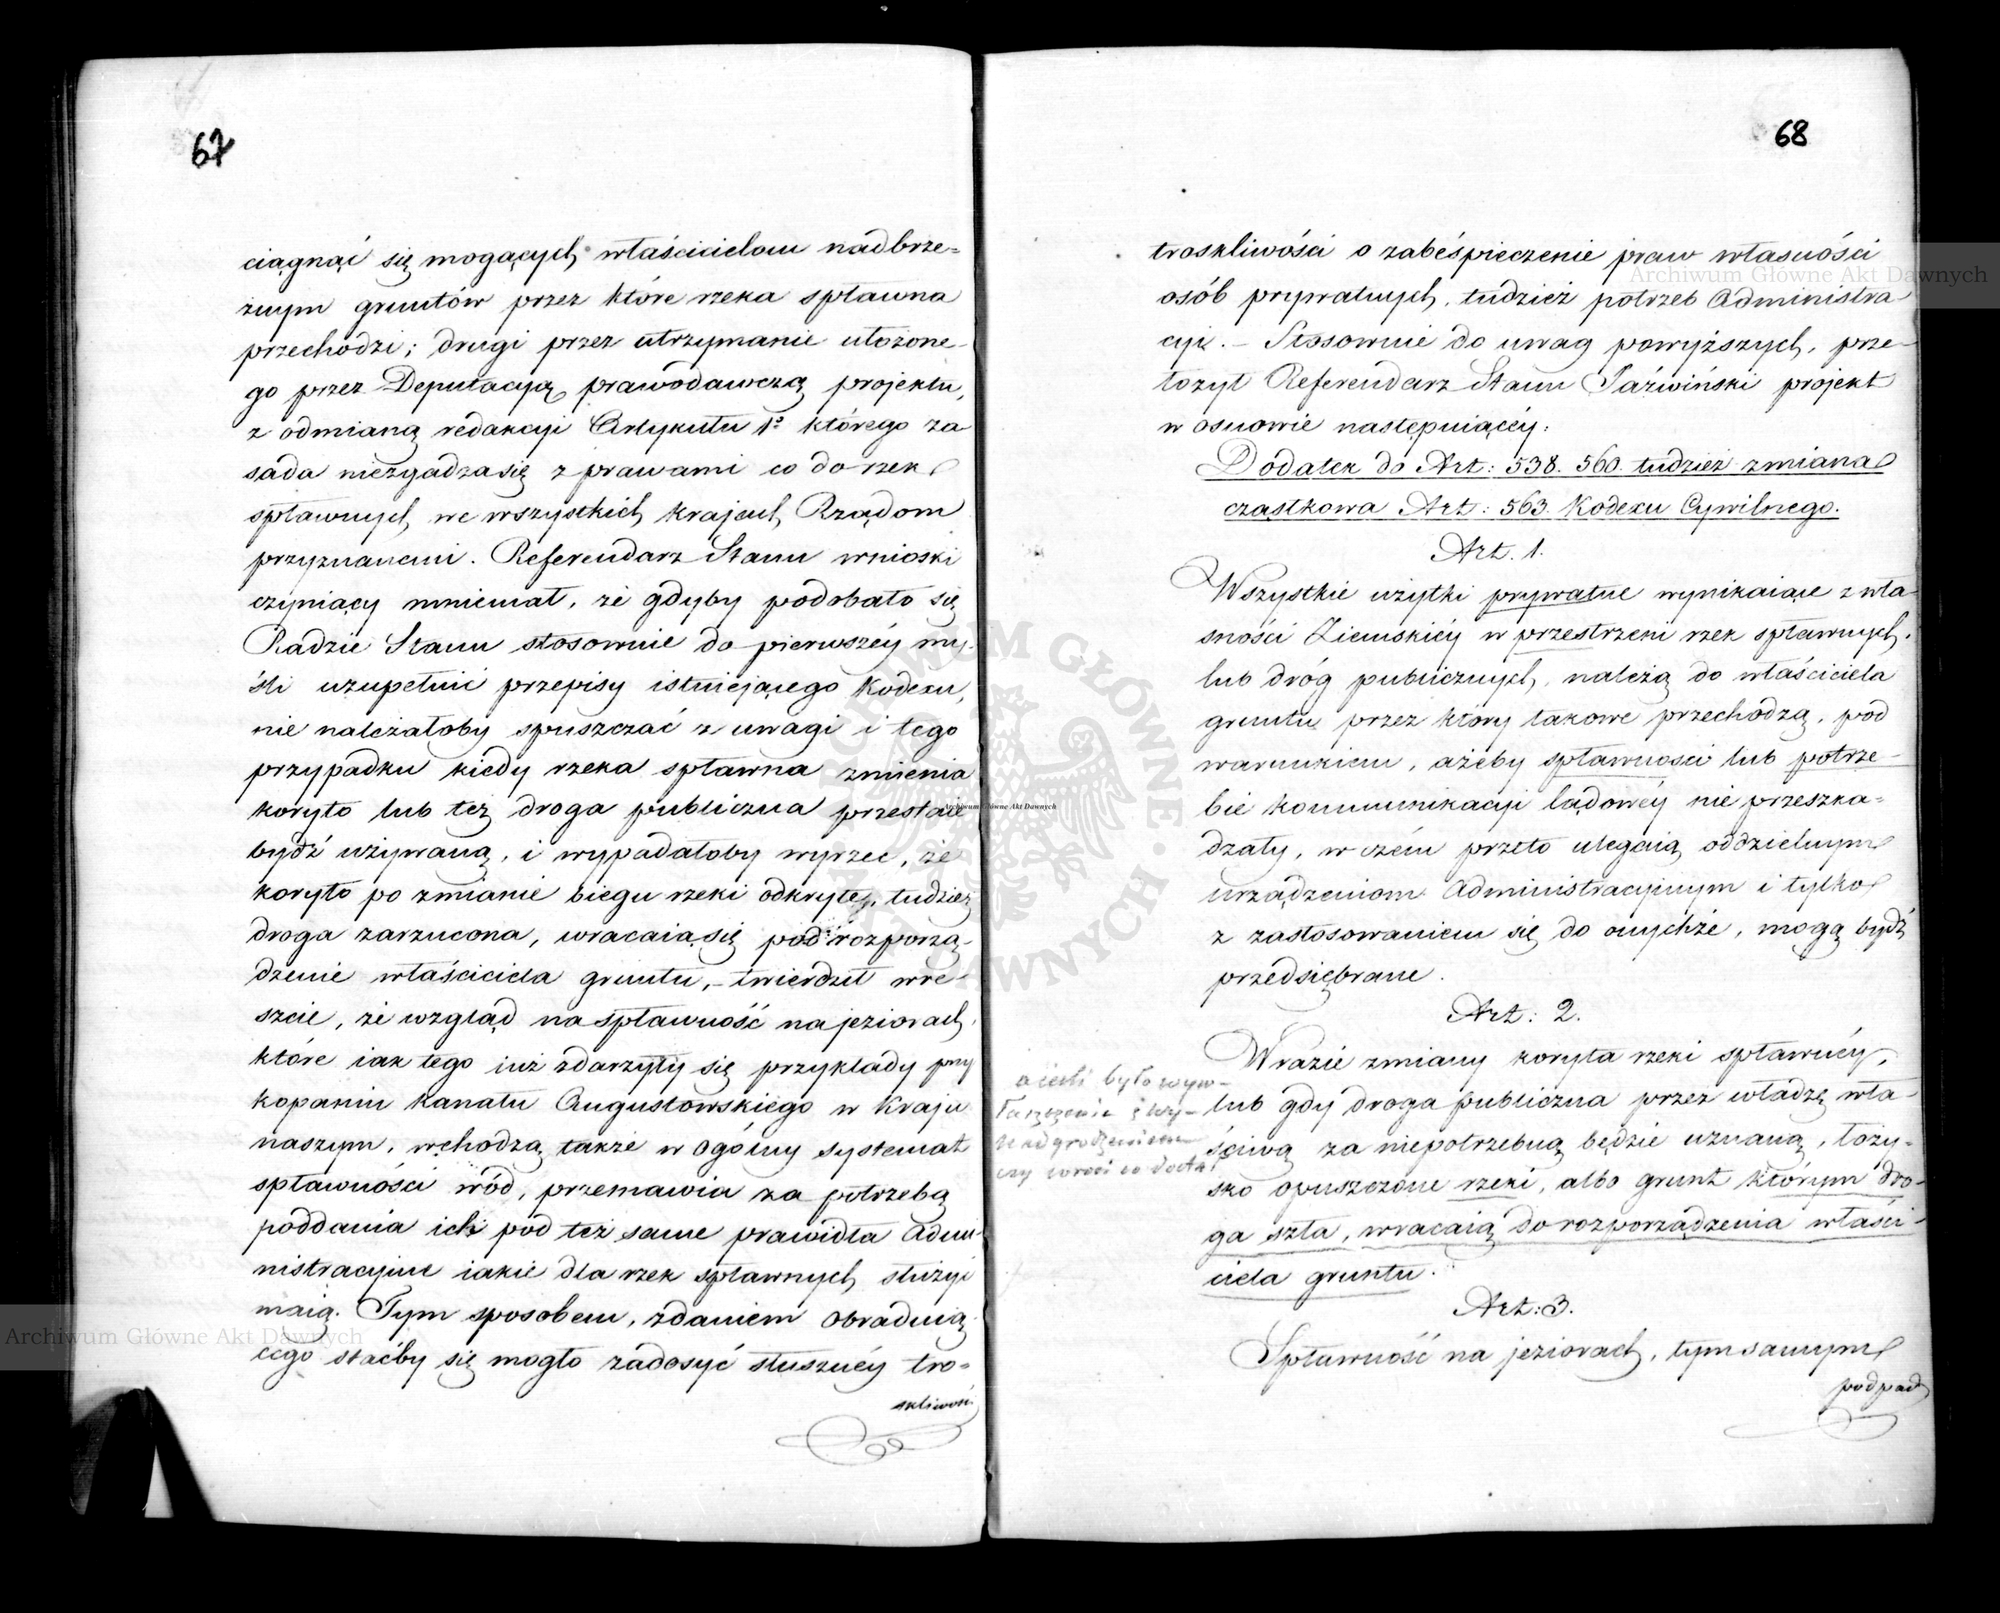 67
ciągnąć się mogących właścicielom nadbrze-
żnym gruntów przez które rzeka spławna
przechodzi; drugi przez utrzymanie ułożone-
go przez Deputacyą prawodawczą projektu,
z odmianą redakcyi Artykułu 1º którego za
sada niezgadza się z prawami co do rzek
spławnych we wszystkich krajach Rządom
przyznanemi. Referendarz Stanu wnioski
czyniący mniemał, że gdyby podobało się
Radzie Stanu stosownie do pierwszéy my-
śli uzupełnić przepisy istniejącego Kodexu,
nie należałoby spuszczać z uwagi i tego
przypadku kiedy rzeka spławna zmienia
koryto lub też droga publiczna przestaie
bydź używaną, i wypadałoby wyrzec, że
koryto po zmianie biegu rzeki odkryte, tudzież
droga zarzucona, wracaią się pod rozporzą-
dzenie właściciela gruntu, – twierdził wre-
szcie, że wzgląd na spławność na jeziorach,
które iak tego iuż zdarzyły się przykłady przy
kopaniu kanału Augustowskiego w Kraju
naszym, wchodzą także w ogólny systemat
spławności wód, przemawia za potrzebą
poddania ich pod też same prawidła Admi-
nistracyine iakie dla rzek spławnych służyć
maią. Tym sposobem, zdaniem obraduią-
cego staćby się mogło zadosyć słusznéy tro-
skliwość.
68
troskliwości o zabeśpieczenie praw własności
osób prywatnych, tudzież potrzeb Administra-
cyi. – Stosownie do uwag powyższych, prze-
łożył Referendarz Stanu Jaźwiński projekt
w osnowie następuiącéy:
Dodatek do Art: 538. 560. tudzież zmiana
cząstkowa Art: 563. Kodexu Cywilnego.
Art. 1.
Wszystkie użytki prywatne wynikaiące z wła-
sności Ziemskiéy w przestrzeni rzek spławnych,
lub dróg publicznych, należą do właściciela
gruntu przez który takowe przechodzą, pod
warunkiem, ażeby spławności lub potrze-
bie kommunikacyi lądowéy nie przeszka-
dzały, w czém przeto ulegaią oddzielnym
urządzeniom Administracyinym i tylko
z zastosowaniem się do onychże, mogą bydź
przedsiębrane.
Art: 2.
W razie zmiany koryta rzeki spławnéy,
lub gdy droga publiczna przez władzę wła-
ściwą za niepotrzebną będzie uznaną, łoży-
sko opuszczone rzeki, albo grunt którym dro-
ga szła, wracaią do rozporządzenia właści-
ciela gruntu.
a ieśli było wyw-
łaszczenie
wynadgrodzeniem
czy wróci co dostał
Art: 3.
Spławność na jeziorach, tym samym
podpad
Archiwum Główne Akt Dawnych
Archiwum Główne Akt Dawnych
Archiwum Główne Akt Dawnych